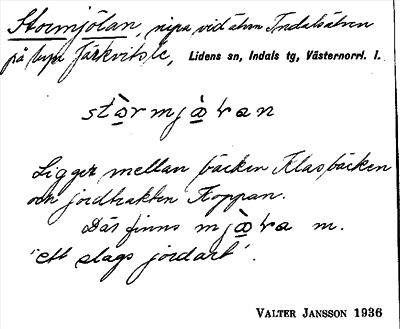 Stormjölan, nipa vid älven Indalsälven
på byn Järkvitsle, Lidens sn, Indals tg, Västernorrl. l.
stɷ̀rmjɷ̀lan
Ligger mellan bäcken Klasbäcken
och jordtrakten Koppan.
Där finns mjɷ̀la m.
'ett slags jordart'.
VALTER JANSSON 1936